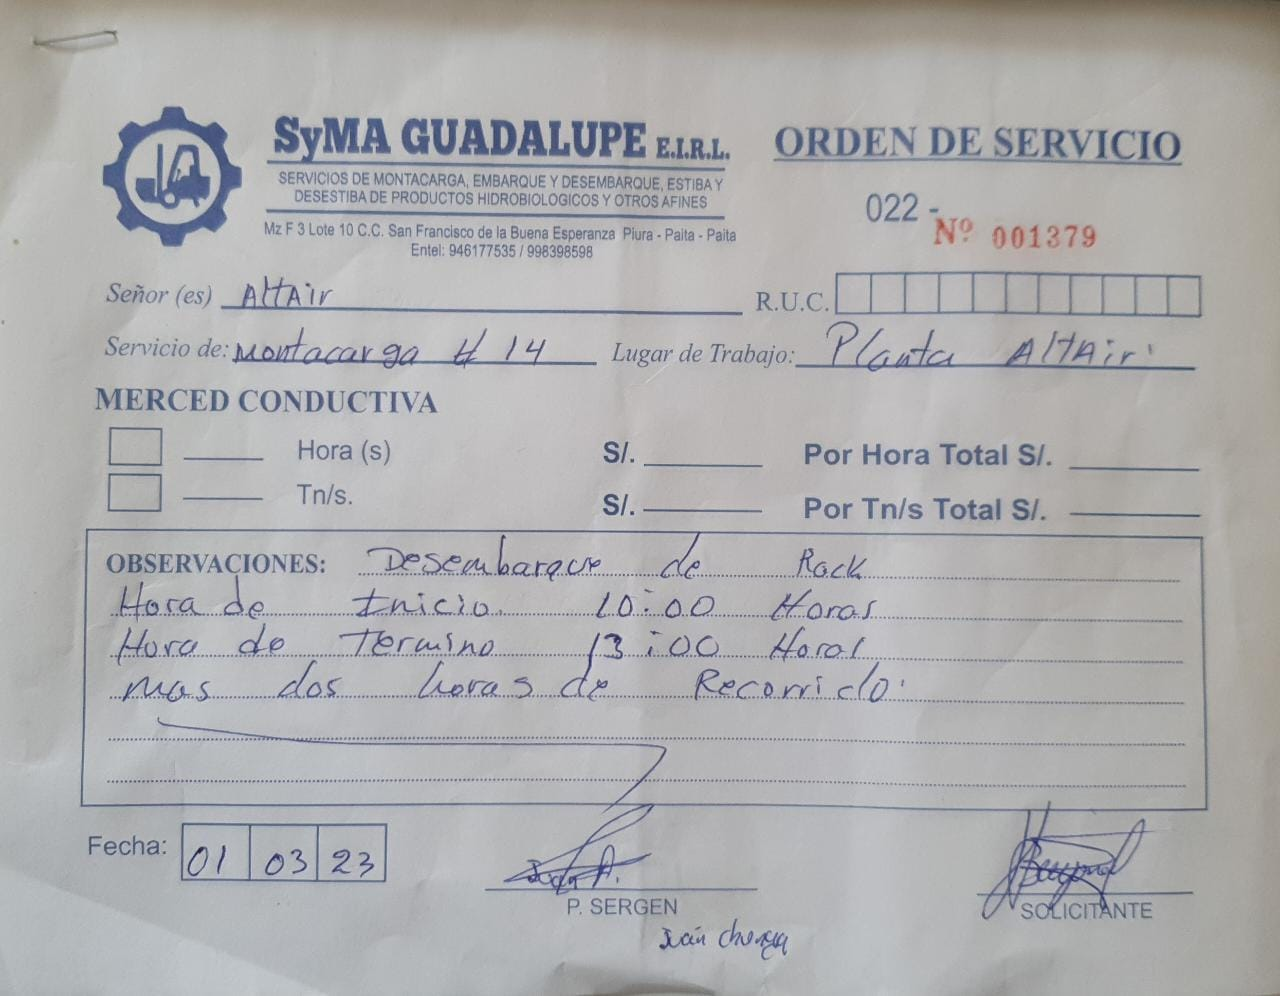 SyMA GUADALUPE E.I.R.L.
SERVICIOS DE MONTACARGA, EMBARQUE Y DESEMBARQUE, ESTIBA Y
DESESTIBA DE PRODUCTOS HIDROBIOLOGICOS Y OTROS AFINES
Mz F 3 Lote 10 C.C. San Francisco de la Buena Esperanza Piura - Paita - Paita
Entel: 946177535 / 998398598
ORDEN DE SERVICIO
022 - Nº 001379
Señor (es) AltAir
R.U.C.
Servicio de: Montacarga # 14 Lugar de Trabajo: Planta AltAir
MERCED CONDUCTIVA
Hora (s) S/. Por Hora Total S/.
Tn/s. S/. Por Tn/s Total S/.
OBSERVACIONES: Desembarque de Rack
Hora de Inicio 10:00 Horas
Hora de Termino 13:00 Horas
mas dos horas de Recorrido.
Fecha: 01 03 23
P. SERGEN
SOLICITANTE
Iván